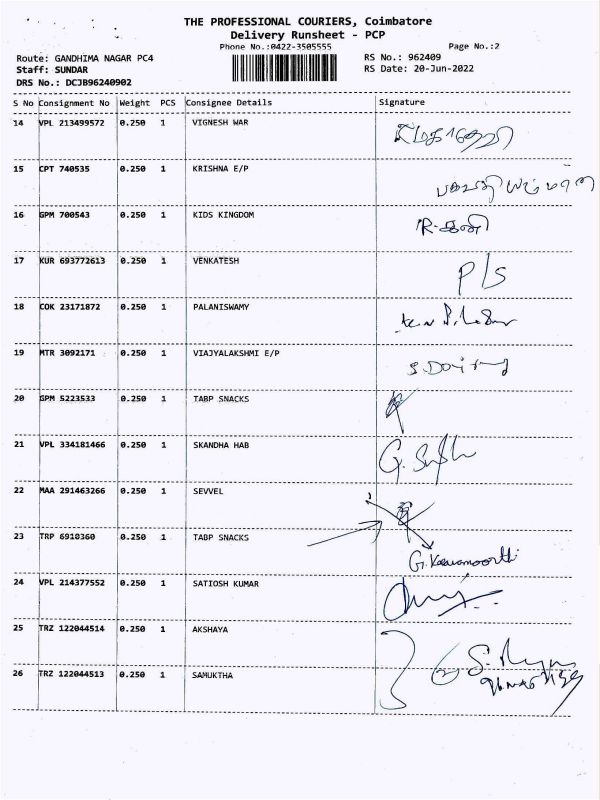 THE PROFESSIONAL COURIERS, Coimbatore
Delivery Runsheet - PCP
Phone No.:0422-3505555
Page No.:2
Route: GANDHIMA NAGAR PC4
RS No.: 962409
Staff: SUNDAR
RS Date: 20-Jun-2022
DRS No.: DCJB96240902
S No Consignment No Weight PCS Consignee Details Signature
14 VPL 213499572 0.250 1 VIGNESH WAR
15 CPT 740535 0.250 1 KRISHNA E/P
16 GPM 700543 0.250 1 KIDS KINGDOM
17 KUR 693772613 0.250 1 VENKATESH P/S
18 COK 23171872 0.250 1 PALANISWAMY
19 MTR 3092171 0.250 1 VIAJYALAKSHMI E/P
20 GPM 5223533 0.250 1 TABP SNACKS
21 VPL 334181466 0.250 1 SKANDHA HAB
22 MAA 291463266 0.250 1 SEVVEL
23 TRP 6910360 0.250 1 TABP SNACKS
24 VPL 214377552 0.250 1 SATIOSH KUMAR
25 TRZ 122044514 0.250 1 AKSHAYA
26 TRZ 122044513 0.250 1 SAMUKTHA